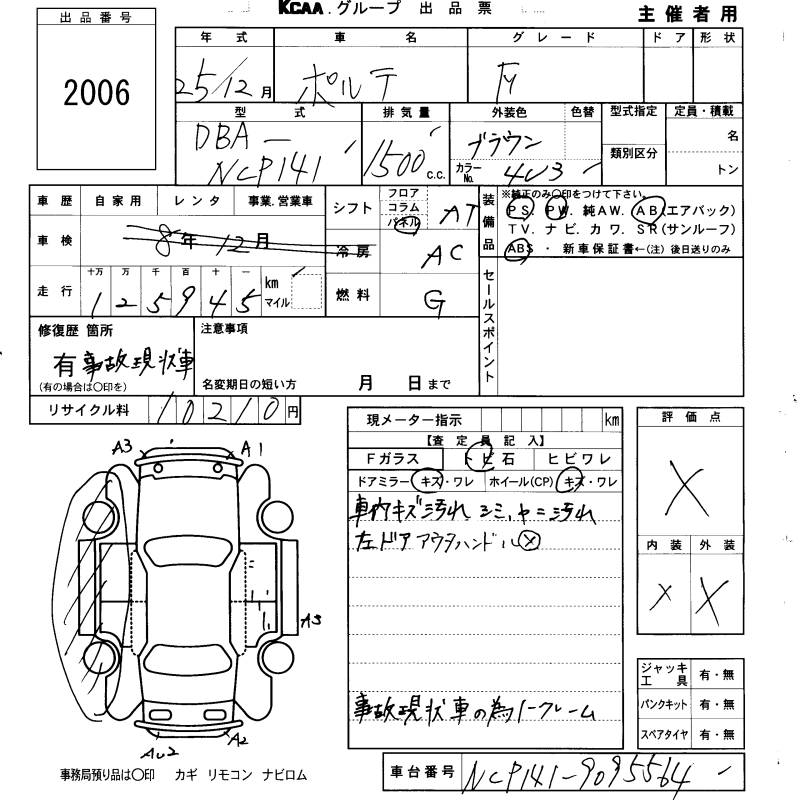 KCAA.グループ 出品票
主催者用
出品番号
2006
年式 車名 グレード ドア 形状
25/12月 ポルテ
型式 排気量 外装色 色替 型式指定 定員・積載
DBA-
NCP141
1500 c.c.
ブラウン
カラーNo. 4U3
類別区分
名
トン
車歴 自家用 レンタ 事業.営業車
車検 8年12月
走行 十万 万 千 百 十 一 km マイル
125945
シフト フロア コラム パネル AT
冷房 AC
燃料 G
装備品
※純正のみ〇印をつけて下さい。
PS. PW. 純AW. AB(エアバック)
TV. ナビ. カワ. SR(サンルーフ)
ABS ・ 新車保証書←(注)後日送りのみ
セールスポイント
修復歴 箇所
有 事故現状車
(有の場合は〇印を)
注意事項
名変期日の短い方 月 日まで
リサイクル料 10210円
現メーター指示 km
【査定員記入】
Fガラス トビ石 ヒビワレ
ドアミラー キズ・ワレ ホイール(CP) キズ・ワレ
車内キズ汚れ シミ、ヤニ汚れ
左ドアアウタハンドル✕
事故現状車の為ノークレーム
評価点
X
内装 外装
X X
ジャッキ工具 有・無
パンクキット 有・無
スペアタイヤ 有・無
A3 A1
A3
AU2 A2
事務局預り品は〇印 カギ リモコン ナビロム
車台番号 NCP141-9095564